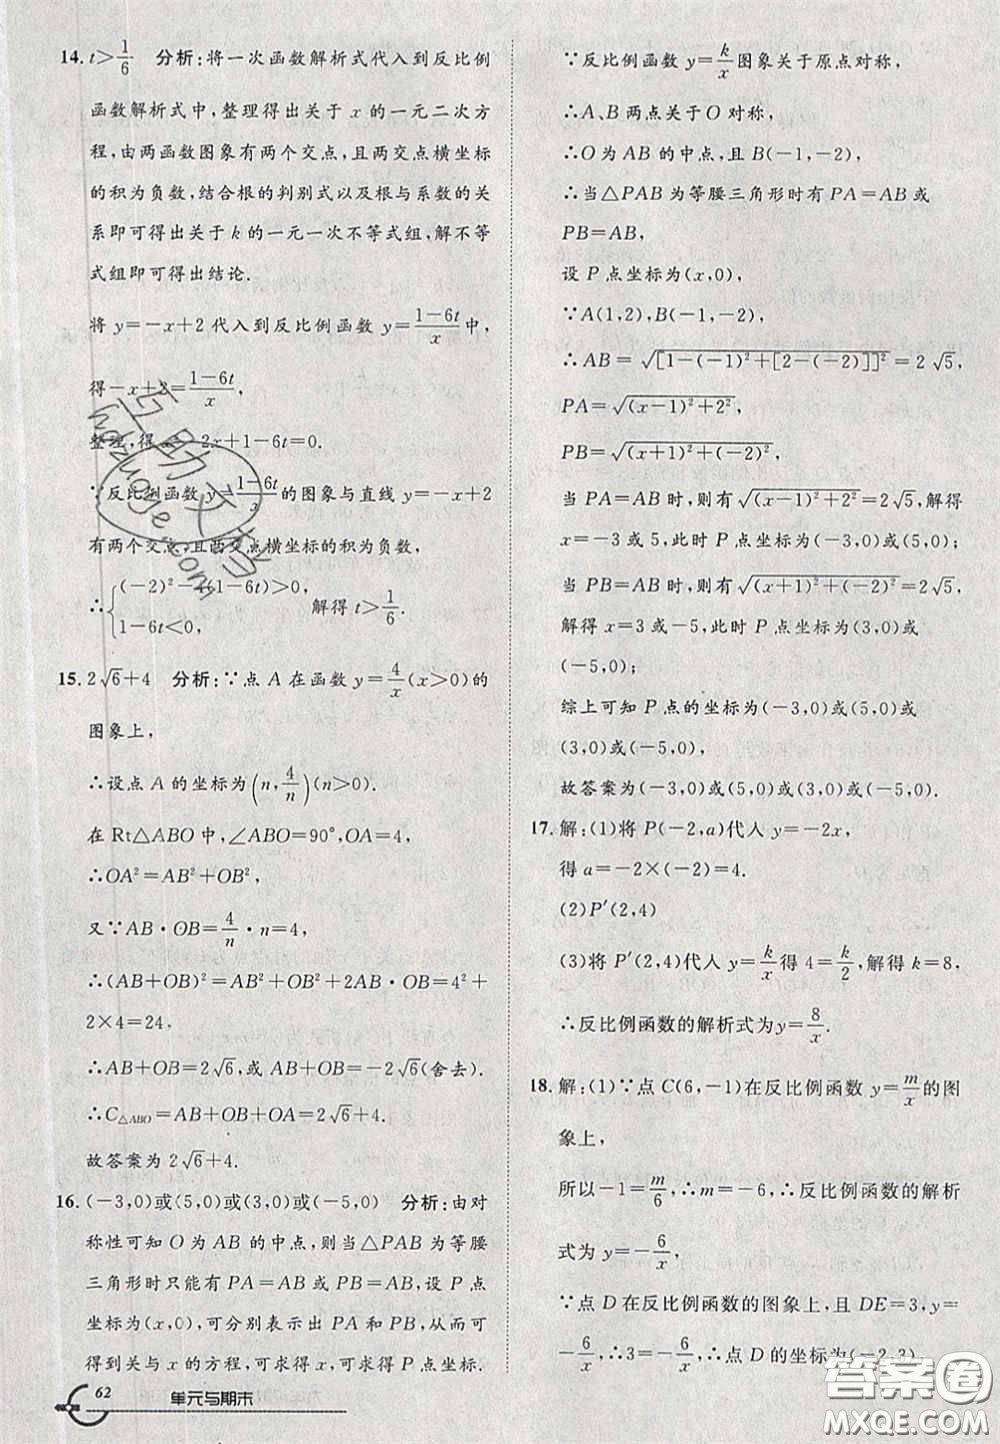 14. t>1/6　分析:将一次函数解析式代入到反比例
函数解析式中,整理得出关于 x 的一元二次方
程,由两函数图象有两个交点,且两交点横坐标
的积为负数,结合根的判别式以及根与系数的关
系即可得出关于 k 的一元一次不等式组,解不等
式组即可得出结论.
将 y=-x+2 代入到反比例函数 y=(1-6t)/x 中,
得 -x+2=(1-6t)/x,
整理,得 x -2x+1-6t=0.
∵反比例函数 y=(1-6t)/x 的图象与直线 y=-x+2
有两个交点,且两交点横坐标的积为负数,
∴{(-2)²-4(1-6t)>0,
1-6t<0, 解得 t>1/6.
15. 2√6+4　分析:∵点 A 在函数 y=4/x(x>0)的
图象上,
∴设点 A 的坐标为(n,4/n)(n>0).
在 Rt△ABO 中,∠ABO=90°,OA=4,
∴OA²=AB²+OB²,
又∵AB·OB=4/n·n=4,
∴(AB+OB)²=AB²+OB²+2AB·OB=4²+
2×4=24,
∴AB+OB=2√6,或 AB+OB=-2√6(舍去).
∴C△ABO=AB+OB+OA=2√6+4.
故答案为 2√6+4.
16. (-3,0)或(5,0)或(3,0)或(-5,0)　分析:由对
称性可知 O 为 AB 的中点,则当△PAB 为等腰
三角形时只能有 PA=AB 或 PB=AB,设 P 点
坐标为(x,0),可分别表示出 PA 和 PB,从而可
得到关与 x 的方程,可求得 x,可求得 P 点坐标.
62 单元与期末
∵反比例函数 y=k/x 图象关于原点对称,
∴A、B 两点关于 O 对称,
∴O 为 AB 的中点,且 B(-1,-2),
∴当△PAB 为等腰三角形时有 PA=AB 或
PB=AB,
设 P 点坐标为(x,0),
∵A(1,2),B(-1,-2),
∴AB=√[1-(-1)²+[2-(-2)]]²=2√5,
PA=√(x-1)²+2²,
PB=√(x+1)²+(-2)²,
当 PA=AB 时,则有√(x-1)²+2²=2√5,解得
x=-3 或 5,此时 P 点坐标为(-3,0)或(5,0);
当 PB=AB 时,则有√(x+1)²+(-2)²=2√5,
解得 x=3 或-5,此时 P 点坐标为(3,0)或
(-5,0);
综上可知 P 点的坐标为(-3,0)或(5,0)或
(3,0)或(-5,0),
故答案为(-3,0)或(5,0)或(3,0)或(-5,0).
17. 解:(1)将 P(-2,a)代人 y=-2x,
得 a=-2×(-2)=4.
(2)P′(2,4)
(3)将 P′(2,4)代人 y=k/x 得 4=k/2,解得 k=8,
∴反比例函数的解析式为 y=8/x.
18. 解:(1)∵点 C(6,-1)在反比例函数 y=m/x 的图
象上,
所以-1=m/6,∴m=-6,∴反比例函数的解析
式为 y=-6/x,
∵点 D 在反比例函数的图象上,且 DE=3,y=
-6/x,∴3=-6/x,∴点 D 的坐标为(-2,3).
答案圈
MXQE.COM
互助文档
hdzuoge.com